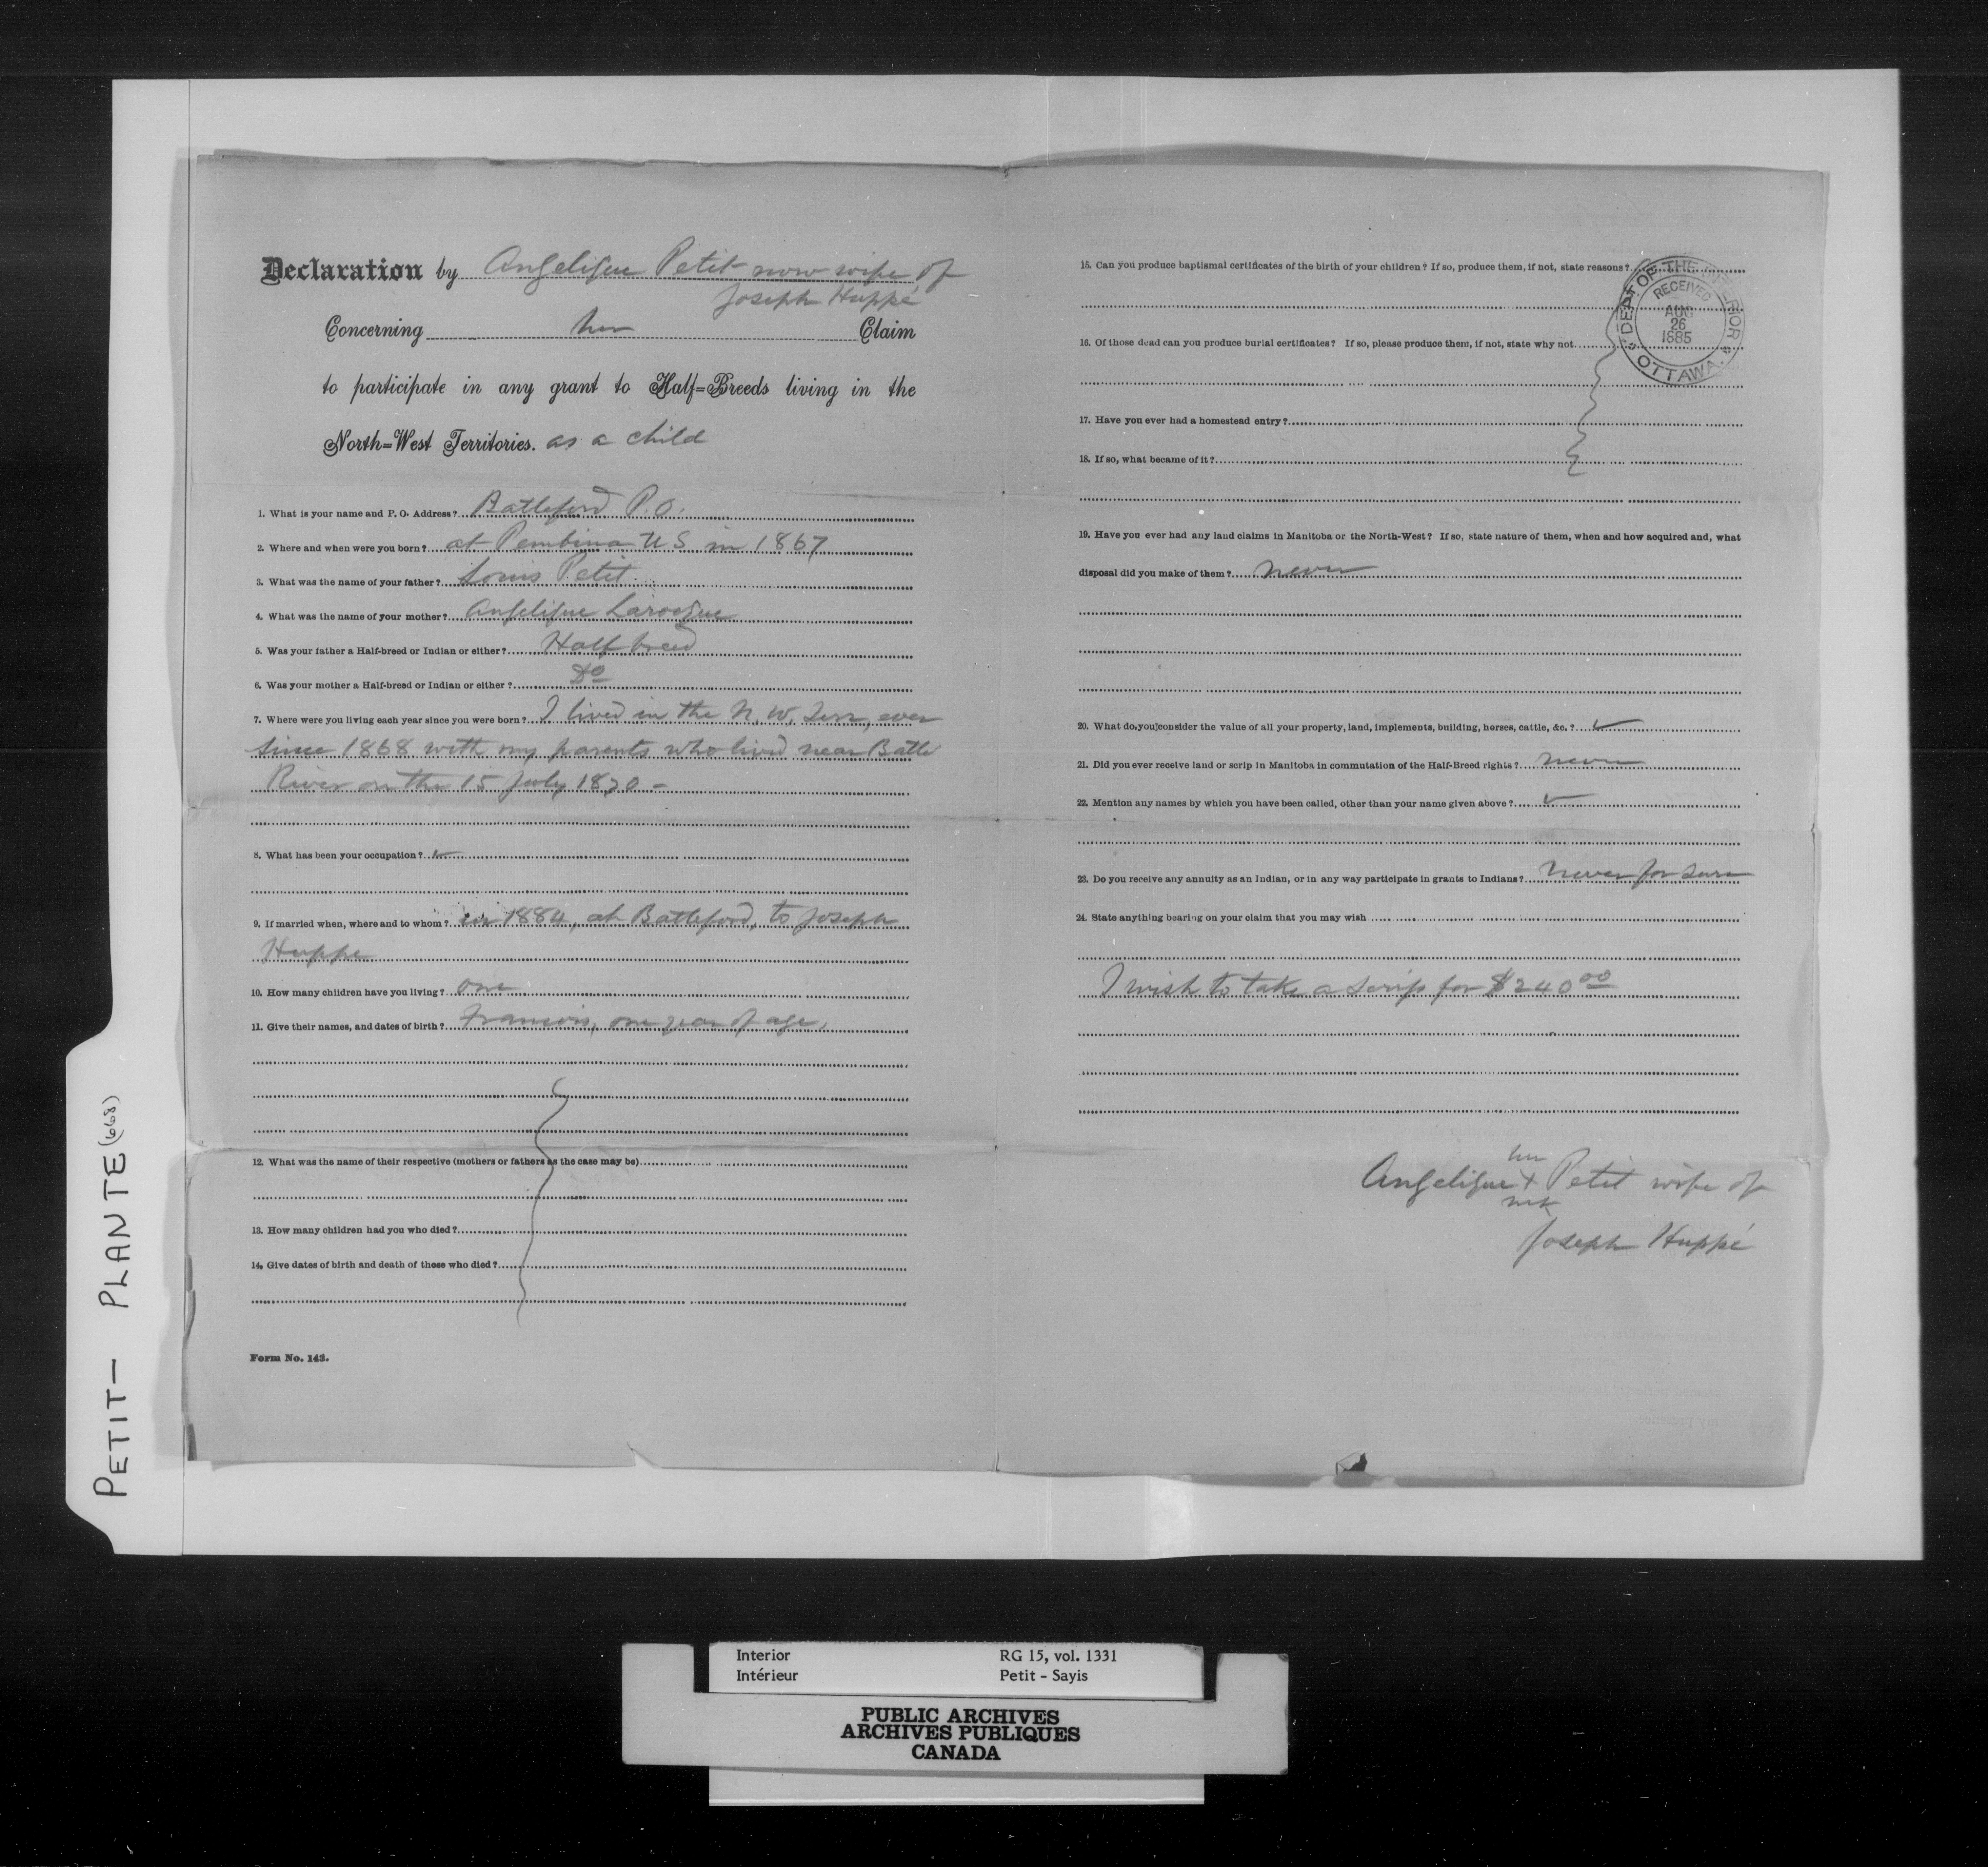 Declaration by Angelique Petit now wife of
Joseph Huppé
Concerning her Claim
to participate in any grant to Half=Breeds living in the
North=West Territories. as a child
1. What is your name and P. O. Address? Battleford P.O.
2. Where and when were you born? at Pembina U S in 1867
3. What was the name of your father? Louis Petit
4. What was the name of your mother? Angelique Larocque
5. Was your father a Half-breed or Indian or either? Half breed
6. Was your mother a Half-breed or Indian or either? Do
7. Where were you living each year since you were born? I lived in the N. W. Terr, ever
since 1868 with my parents who lived near Battle
River on the 15 July 1870 -
8. What has been your occupation? ✓
9. If married when, where and to whom? in 1884, at Battleford, to Joseph
Huppe
10. How many children have you living? one
11. Give their names, and dates of birth? Francois, one year of age,
12. What was the name of their respective (mothers or fathers as the case may be)
13. How many children had you who died?
14. Give dates of birth and death of these who died?
Form No. 143.
15. Can you produce baptismal certificates of the birth of your children? If so, produce them, if not, state reasons?
DEPT OF THE INTERIOR
RECEIVED
AUG
26
1885
OTTAWA
16. Of those dead can you produce burial certificates? If so, please produce them, if not, state why not
17. Have you ever had a homestead entry?
18. If so, what became of it?
19. Have you ever had any land claims in Manitoba or the North-West? If so, state nature of them, when and how acquired and, what
disposal did you make of them? never
20. What do you consider the value of all your property, land, implements, building, horses, cattle, &c.? ✓
21. Did you ever receive land or scrip in Manitoba in commutation of the Half-Breed rights? never
22. Mention any names by which you have been called, other than your name given above? ✓
23. Do you receive any annuity as an Indian, or in any way participate in grants to Indians? Never for sure
24. State anything bearing on your claim that you may wish
I wish to take a Scrip for $240 00
her
Angelique + Petit wife of
mk
Joseph Huppé
PETIT— PLANTE (668)
Interior RG 15, vol. 1331
Intérieur Petit - Sayis
PUBLIC ARCHIVES
ARCHIVES PUBLIQUES
CANADA